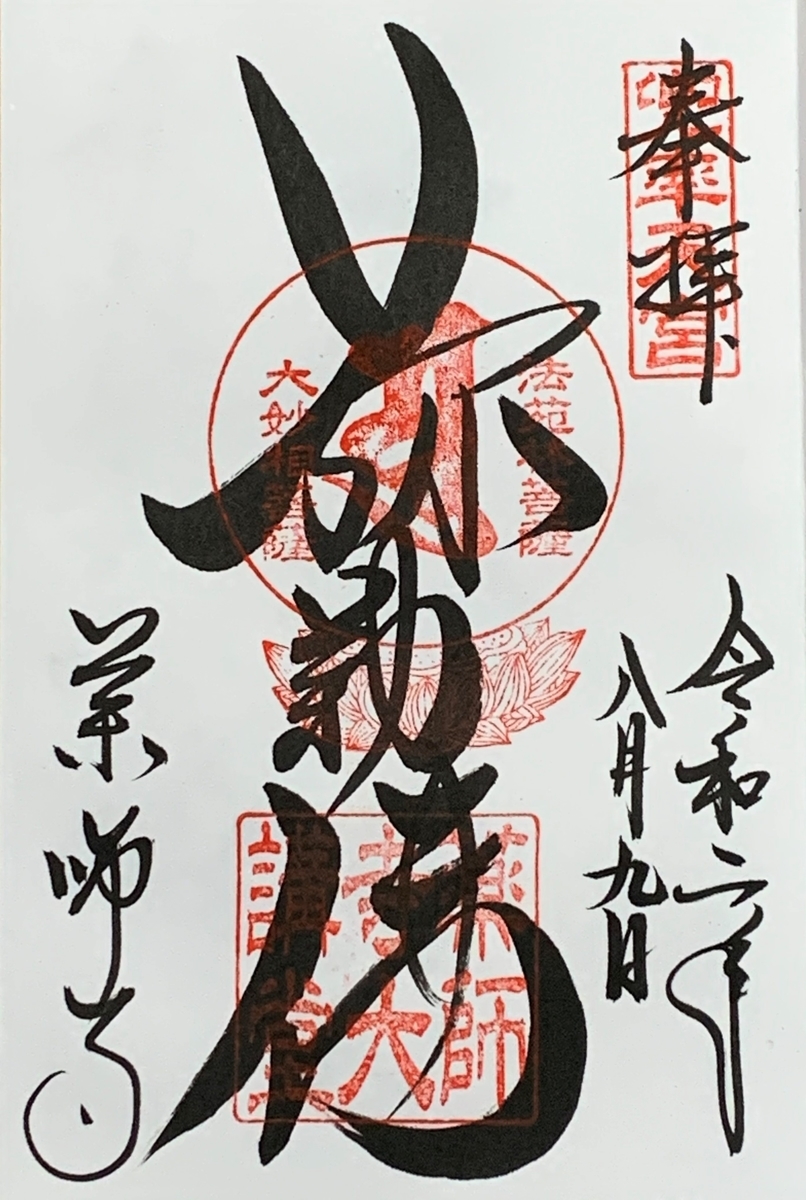 奉拝
令和二年
八月九日
法苑林菩薩
弥勒
大妙相菩薩
薬師
寺大
講堂
薬師寺